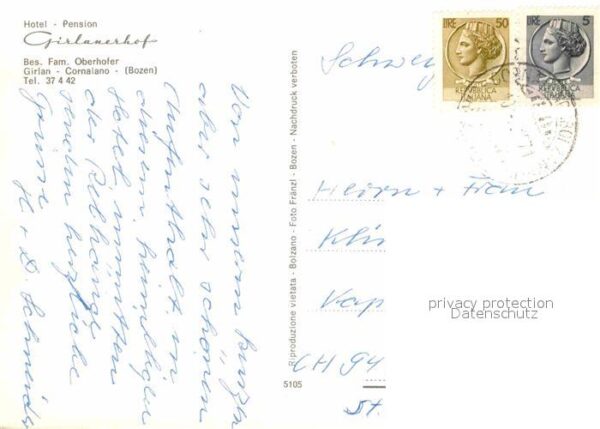 Hotel - Pension
Girlanerhof
Bes. Fam. Oberhofer
Girlan - Cornaiano - (Bozen)
Tel. 37 4 42
Von unserem kurzen
aber sehr schönen
Aufenthalt in
diesem heimeligen
Hotel inmitten
der Rebhänge
senden herzliche
Grüsse
H. + D. Schneider
5105
Riproduzione vietata - Bolzano - Foto Fränzl - Bozen - Nachdruck verboten
LIRE 50
REPUBBLICA
ITALIANA
LIRE 5
REPUBBLICA
ITALIANA
Schwei
Herrn + Frau
Kli
Kap
CH 94
St.
privacy protection
Datenschutz